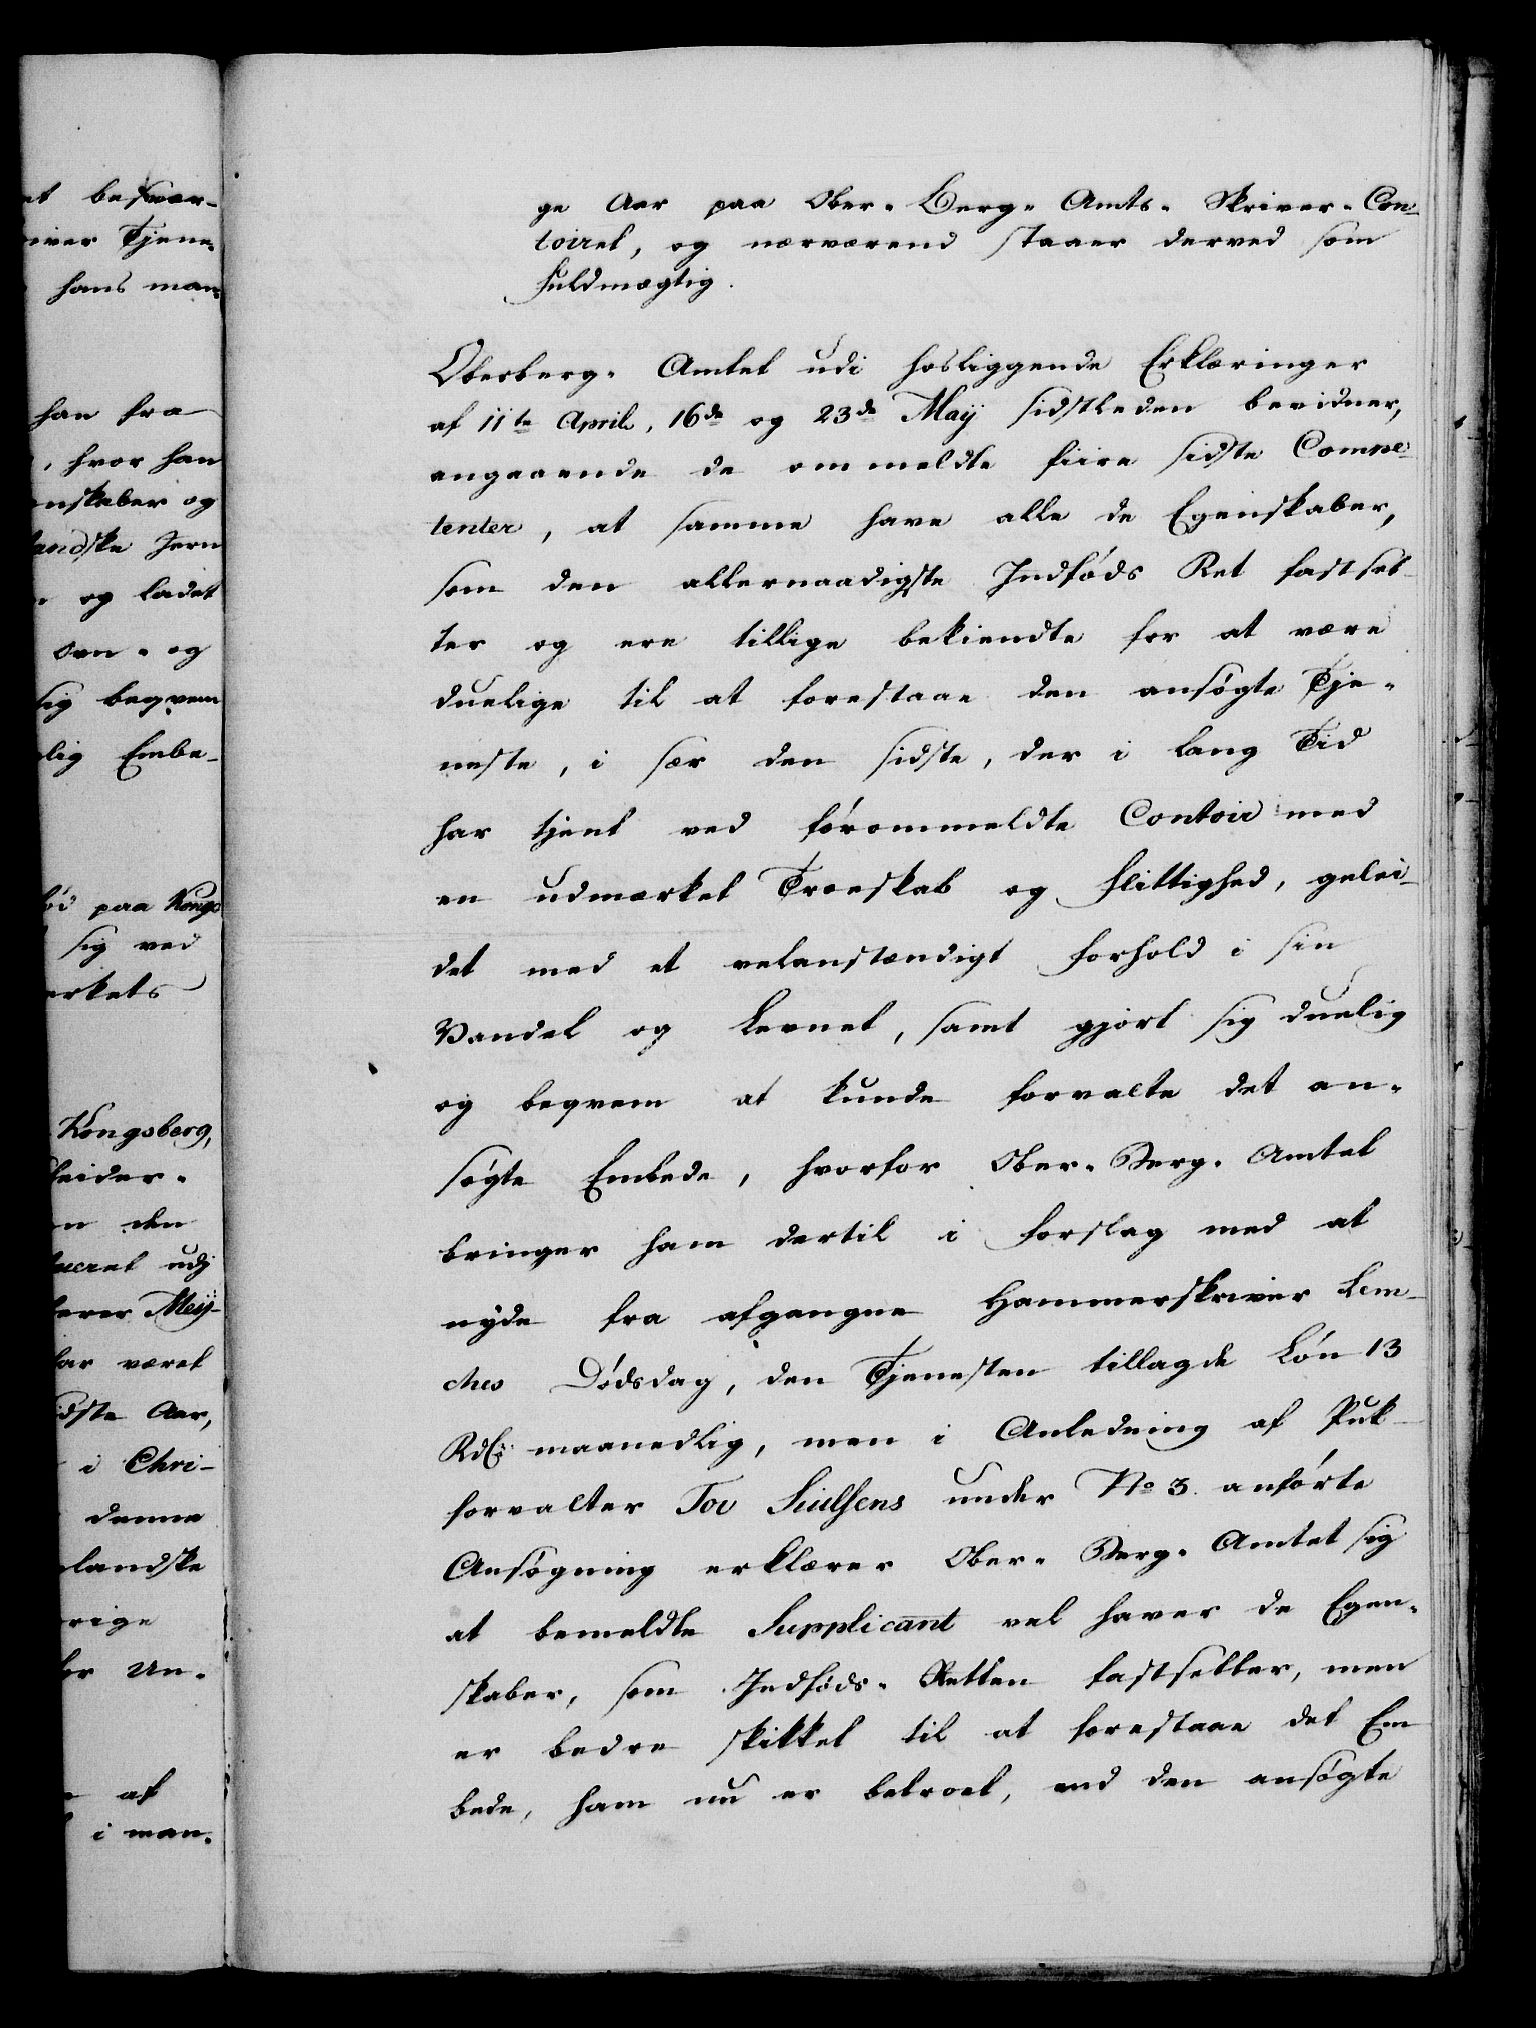 et besvær-
river Tjene-
hans man-
han fra
, hvor han
enskaber og
landske Jern
og ladet
Ovn- og
sig beqvem
lig Embe-
paa Kongs
sig ved
erkets
Kongsberg,
beider-
n den
ucret udj
erer Meÿ-
har været
idste Aar,
i Chri-
denne
landske
rige
for Un-
af
i man-
ge Aar paa Ober-Berg-Amts-Skriver-Con-
toiret, og nærværend staaer derved som
Fuldmægtig.
Oberberg-Amtet udi hosliggende Erklæringer
af 11te April, 16de og 23de Maÿ sidstleden bevidner,
angaaende de ommeldte fiire sidste Compe-
tenter, at samme have alle de Egenskaber,
som den allernaadigste Indføds Ret fastset-
ter og ere tillige bekiendte for at være
duelige til at forestaae den ansøgte Tje-
neste, i sær den sidste, der i lang Tid
har tjent ved førommeldte Contoir med
en udmærket Troeskab og Flittighed, gelei-
det med et velanstændigt Forhold i sin
Vandel og Levnet, samt gjort sig duelig
og beqvem at kunde forvalte det an-
søgte Embede, hvorfor Ober-Berg-Amtet
bringer ham dertil i Forslag med at
nyde fra afgangne Hammerskriver Lem-
ches Dødsdag, den Tjenesten tillagde Løn 13
Rdlr maanedlig, men i Anledning af Puk-
forvalter Tov Siulsens under No 3. anførte
Ansøgning erklærer Ober-Berg-Amtet sig
at bemeldte Supplicant vel haver de Egen-
skaber, som Indføds-Retten fastsetter, men
er bedre skikket til at forestaae det Em-
bede, ham nu er betroet, end den ansøgte